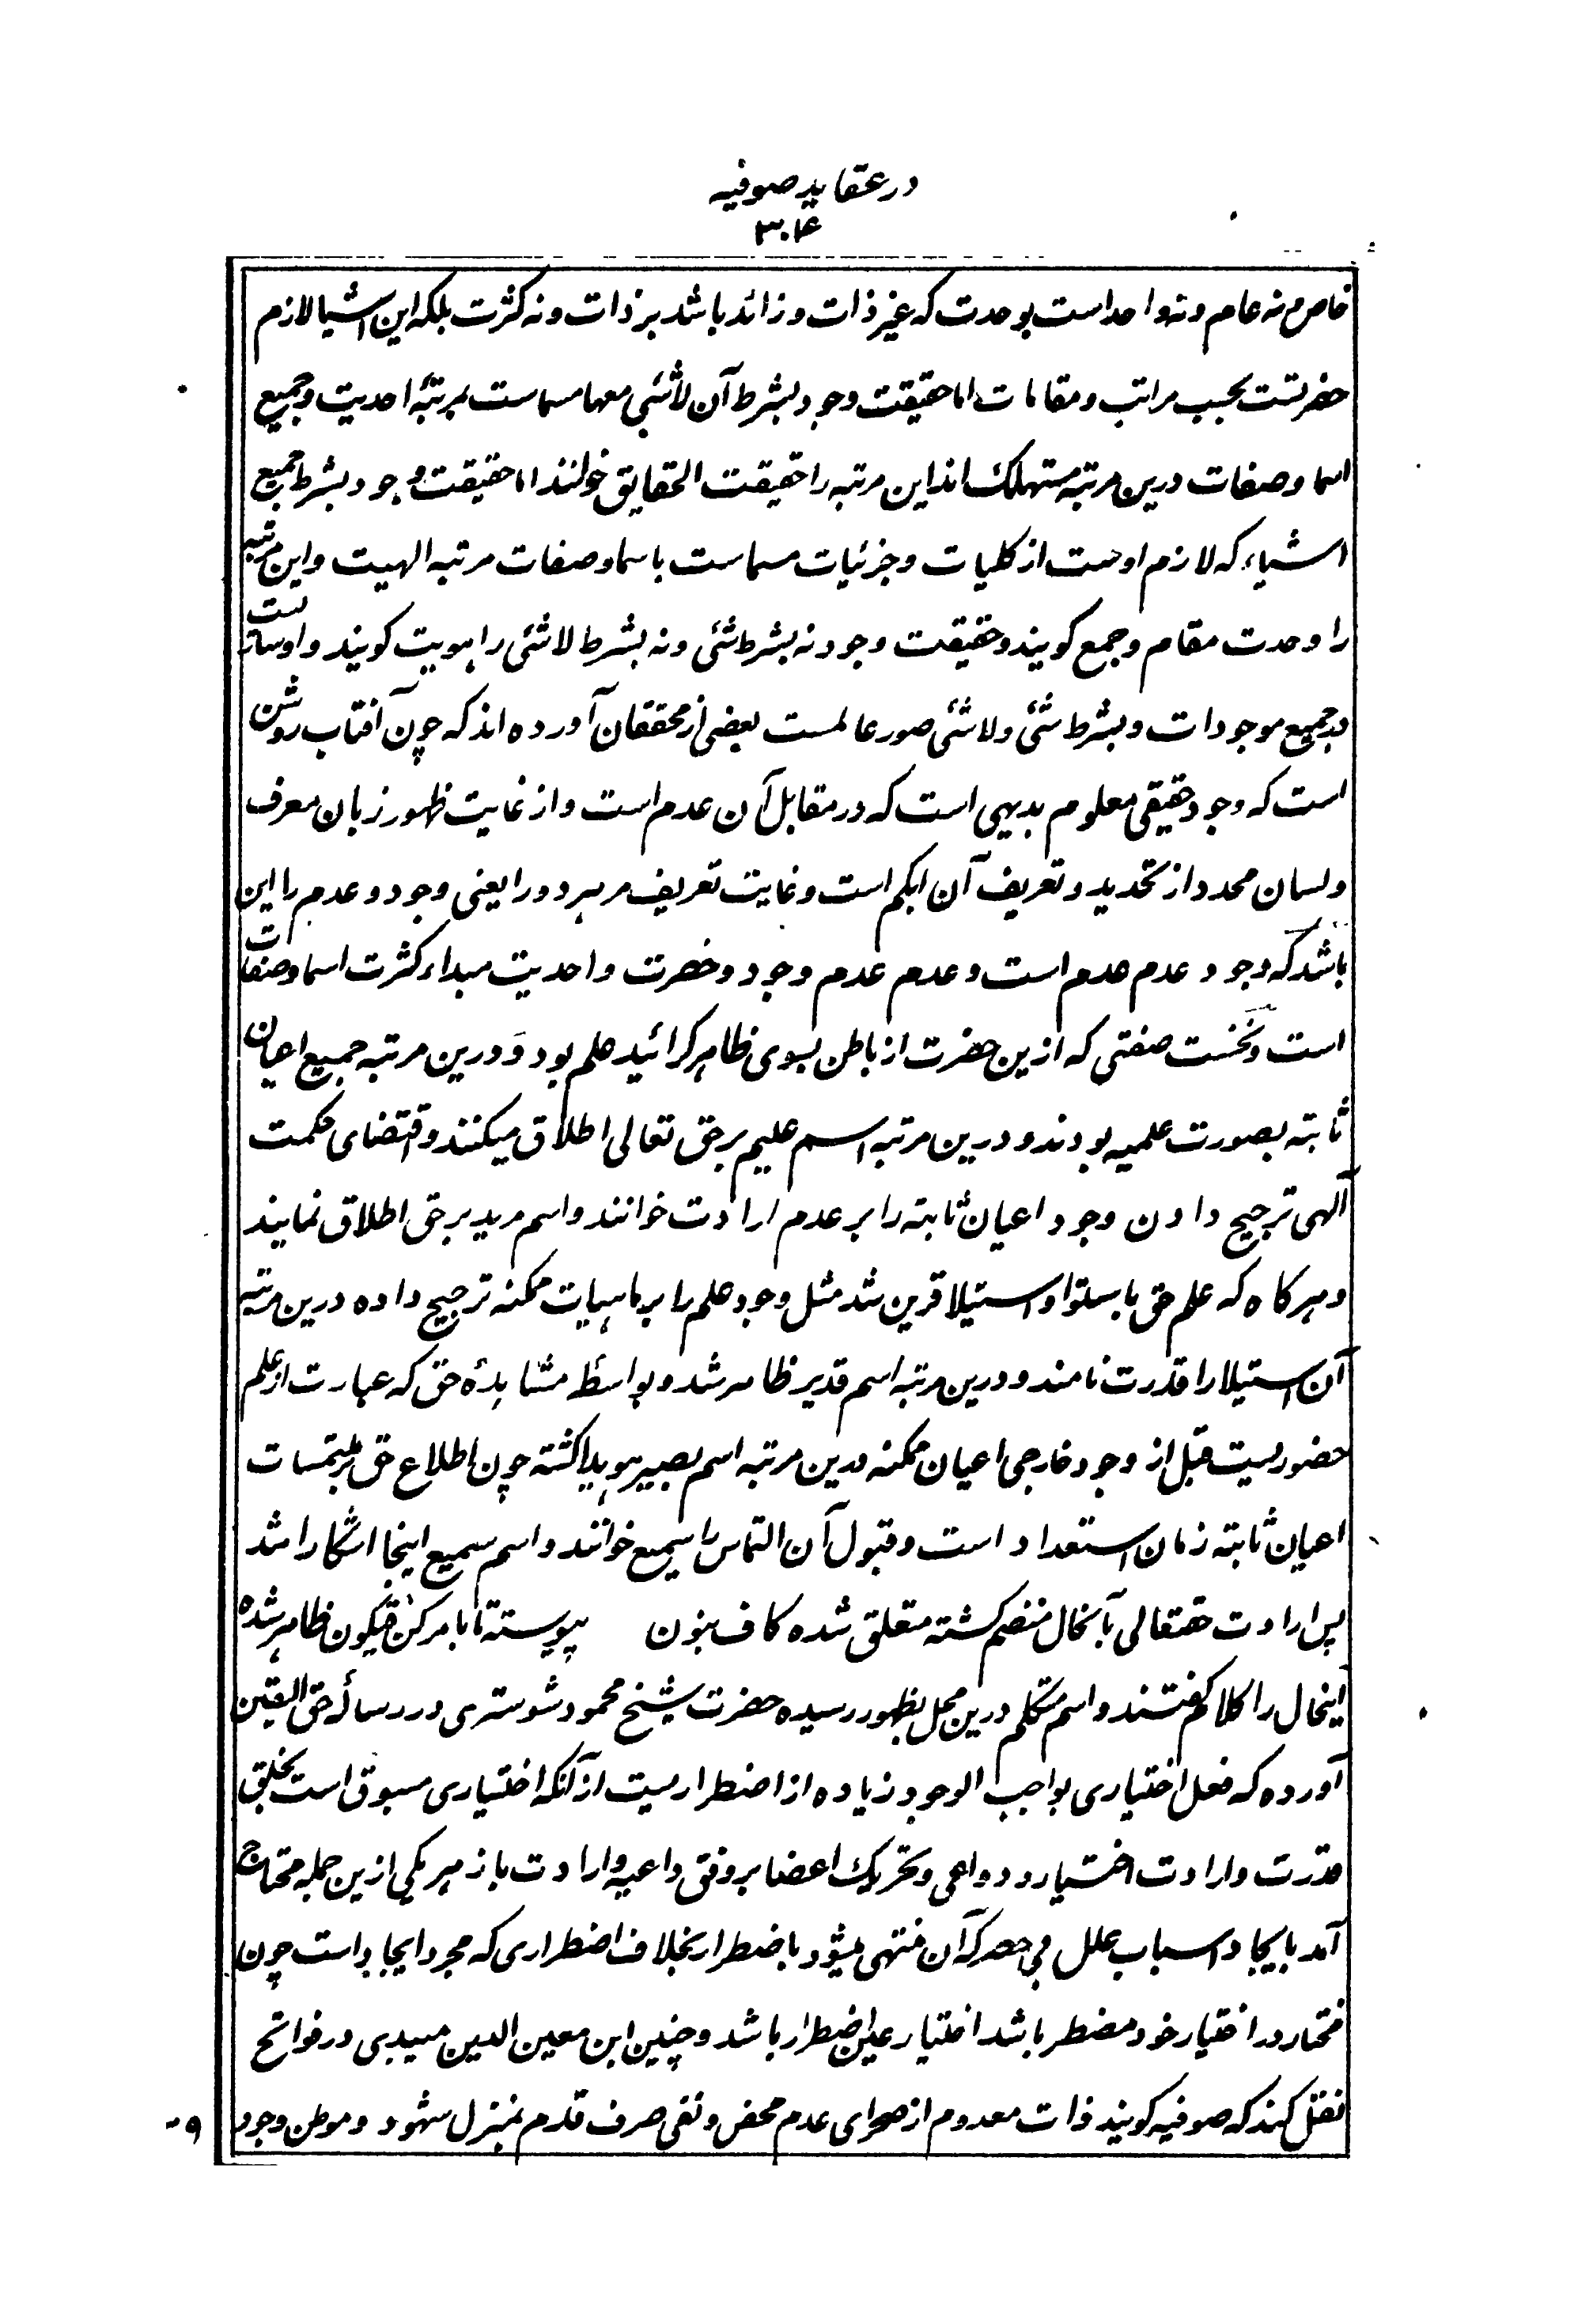 در عقاید صوفیه
۳۰۴
خاص و نه عام و نه واحد است بوحدت که غیر ذات و زائد باشد بر ذات و نه کثرت بلکه این اشیا لازم
حضرتست بحسب مراتب و مقامات اما حقیقت وجود بشرط آن لاشئی معها مسماست بمرتبهٔ احدیت و جمیع
اسما و صفات درین مرتبه مستهلک اند این مرتبه را حقیقت الحقایق خوانند اما حقیقت وجود بشرط جمیع
اشیاء که لازم اوست از کلیات و جزئیات مسماست باسما و صفات مرتبه الهیت و این مرتبه
را وحدت مقام و جمع کویند و حقیقت وجود نه بشرط شئی و نه بشرط لاشئی را هویت کویند و او ساریست
در جمیع موجودات و بشرط شئی ولاشئی صور عالمست بعضی از محققان آورده اند که چون آفتاب روشن
است که وجود حقیقی معلوم بدیهی است که در مقابل آن عدم است و از غایت ظهور زبان معرف
و لسان محدد از تحدید و تعریف آن ابکم است و غایت تعریف مر هر دو را یعنی وجود و عدم را این
باشد که وجود عدم عدم است و عدم عدم وجود و حضرت واحدیت مبداء کثرت اسما و صفات
است و نخست صفتی که ازین حضرت از باطن بسوی ظاهر کرائید علم بود و درین مرتبه جمیع اعیان
ثابته بصورت علمیه بودند و درین مرتبه اسم علیم بر حق تعالی اطلاق میکنند و اقتضای حکمت
آلهی ترجیح دادن وجود اعیان ثابته را بر عدم ارادت خوانند و اسم مرید بر حق اطلاق نمایند
و هر کاه که علم حق باستوا و استیلا قرین شد مثل وجود علم را بر ماهیات ممکنه ترجیح داده درین مرتبه
آن استیلا را قدرت نامند و درین مرتبه اسم قدیر ظاهر شد و بواسطهٔ مشاهدهٔ حق که عبارت از علم
حضوریست قبل از وجود خارجی اعیان ممکنه درین مرتبه اسم بصیر هویدا کشته چون اطلاع حق بر ملتمسات
اعیان ثابته زمان استعداد است و قبول آن التماس را سمیع خوانند و اسم سمیع اینجا اشکارا شد
پس ارادت حقتعالی بآنحال منضم کشته متعلق شده کاف بنون پیوسته تا بامر کن فیکون ظاهر شده
اینحال را کلام کفتند و اسم متکلم درین محل بظهور رسیده حضرت شیخ محمود شوستری در رسالهٔ حق الیقین
آورده که فعل اختیاری بواجب الوجود زیاده از اضطراریست از آنکه اختیاری مسبوق است بخلق
قدرت و ارادت اختیار و دواعی و تحریک اعضا بر وفق داعیه و ارادت باز هر یکی ازین جمله محتاج
آمد بایجاد اسباب علل بی حصر که آن منتهی میشود باضطرار بخلاف اضطراری که مجرد ایجاد است چون
مختار در اختیار خود مضطر باشد اختیار عین اضطرار باشد و چنین ابن معین الدین میبدی در فواتح
نقل کند که صوفیه کویند ذات معدوم از صحرای عدم محض و نفی صرف قدم بمنزل شهود و موطن وجود